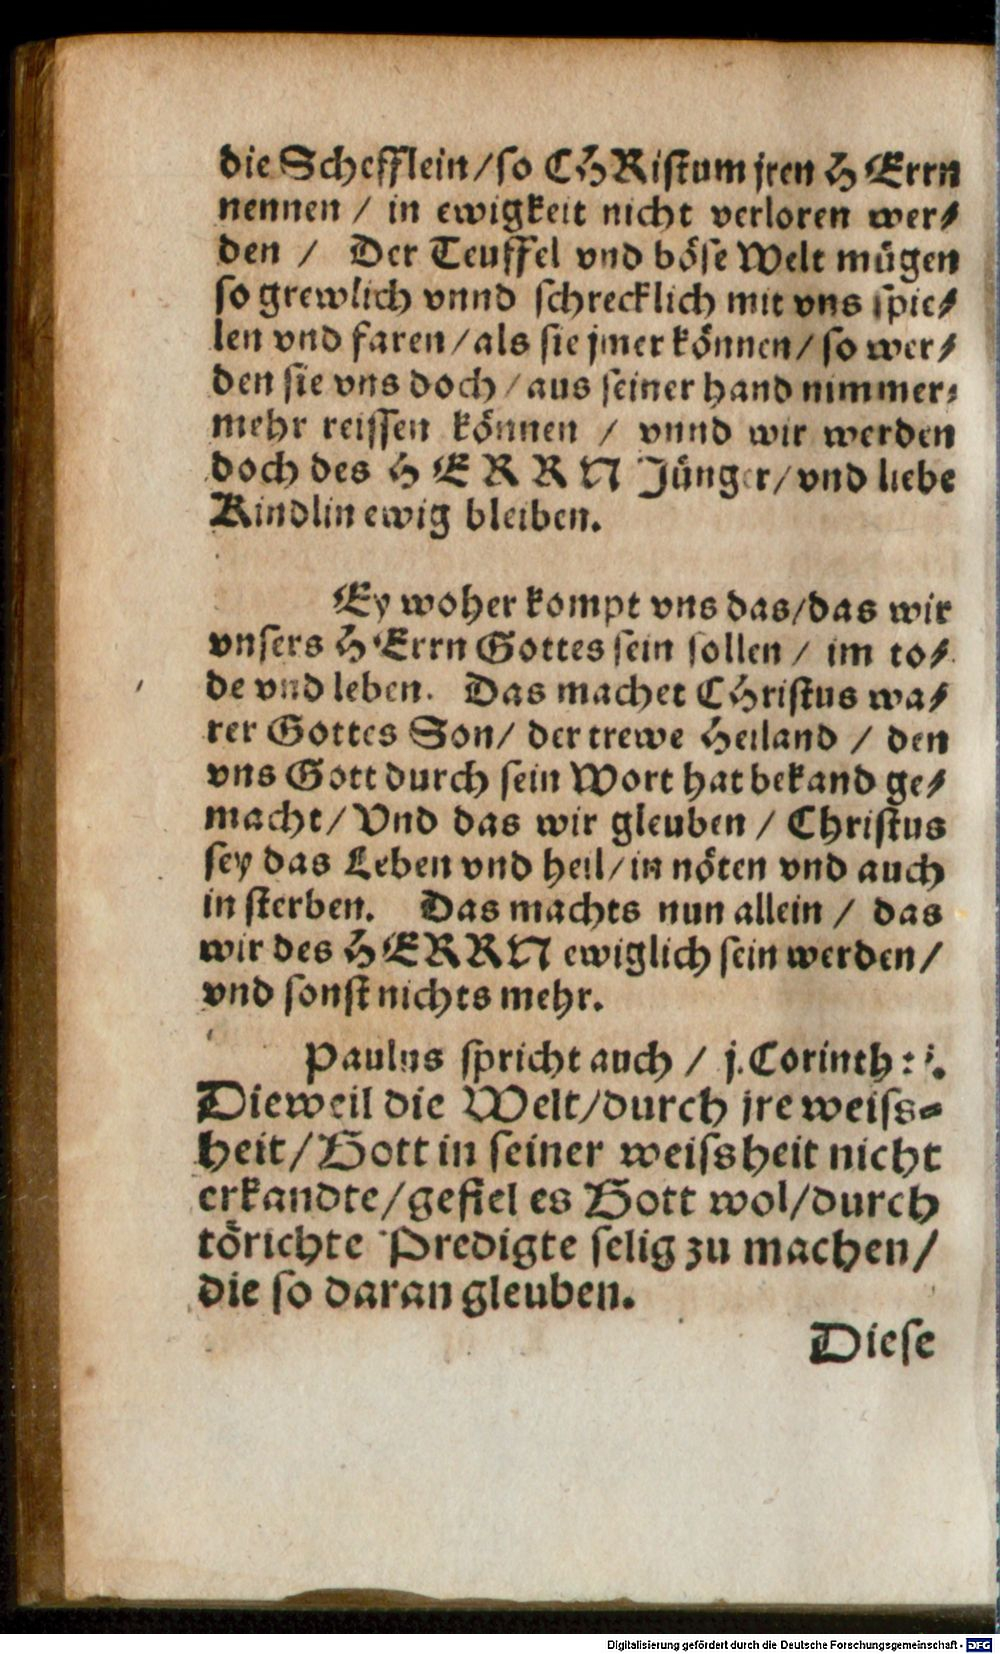 die Schefflein/so CHRistum jren HErrn
nennen / in ewigkeit nicht verloren wer⸗
den / Der Teuffel vnd böse Welt mügen
so grewlich vnnd schrecklich mit vns spie⸗
len vnd faren/als sie jmer können/so wer⸗
den sie vns doch/aus seiner hand nimmer⸗
mehr reissen können / vnnd wir werden
doch des HERRN Jünger/vnd liebe
Kindlin ewig bleiben.
Ey woher kompt vns das/das wir
vnsers HErrn Gottes sein sollen / im to⸗
de vnd leben. Das machet CHristus wa⸗
rer Gottes Son/ der trewe Heiland / den
vns Gott durch sein Wort hat bekand ge⸗
macht/Vnd das wir gleuben / Christus
sey das Leben vnd heil/in nöten vnd auch
in sterben. Das machts nun allein / das
wir des HERRN ewiglich sein werden/
vnd sonst nichts mehr.
Paulus spricht auch / j. Corinth: j.
Dieweil die Welt/durch jre weiss⸗
heit/Gott in seiner weissheit nicht
erkandte/gefiel es Gott wol/durch
törichte Predigte selig zu machen/
die so daran gleuben.
Diese
Digitalisierung gefördert durch die Deutsche Forschungsgemeinschaft - DFG